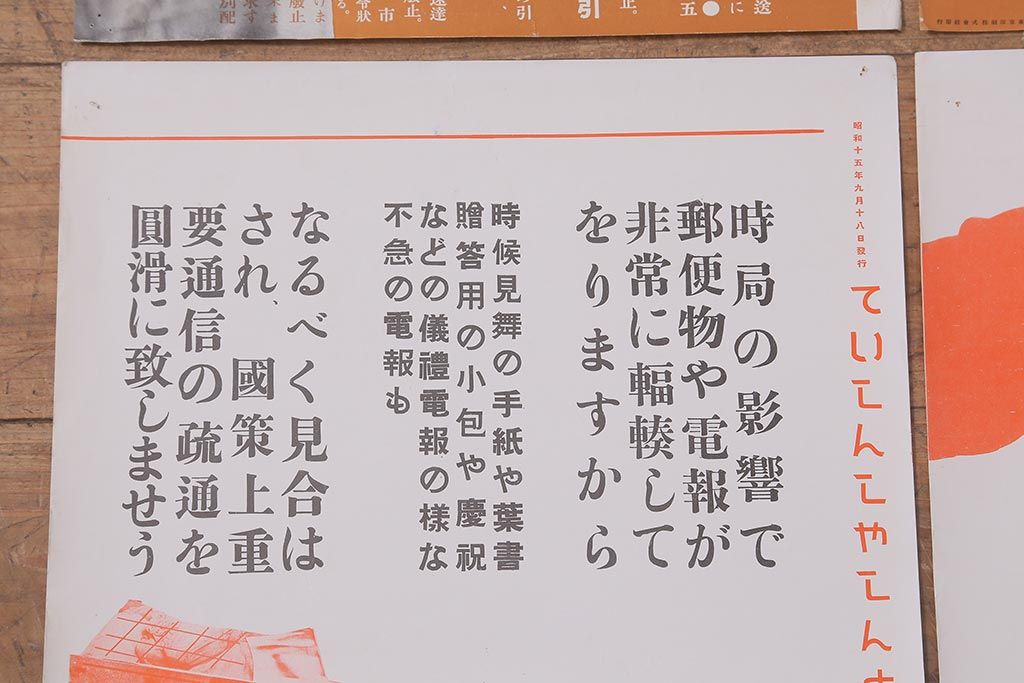 昭和十五年九月十八日發行
ていしんしやしん
時局の影響で
郵便物や電報が
非常に輻輳して
をりますから
時候見舞の手紙や葉書
贈答用の小包や慶祝
などの儀禮電報の様な
不急の電報も
なるべく見合は
され、國策上重
要通信の疏通を
圓滑に致しませう